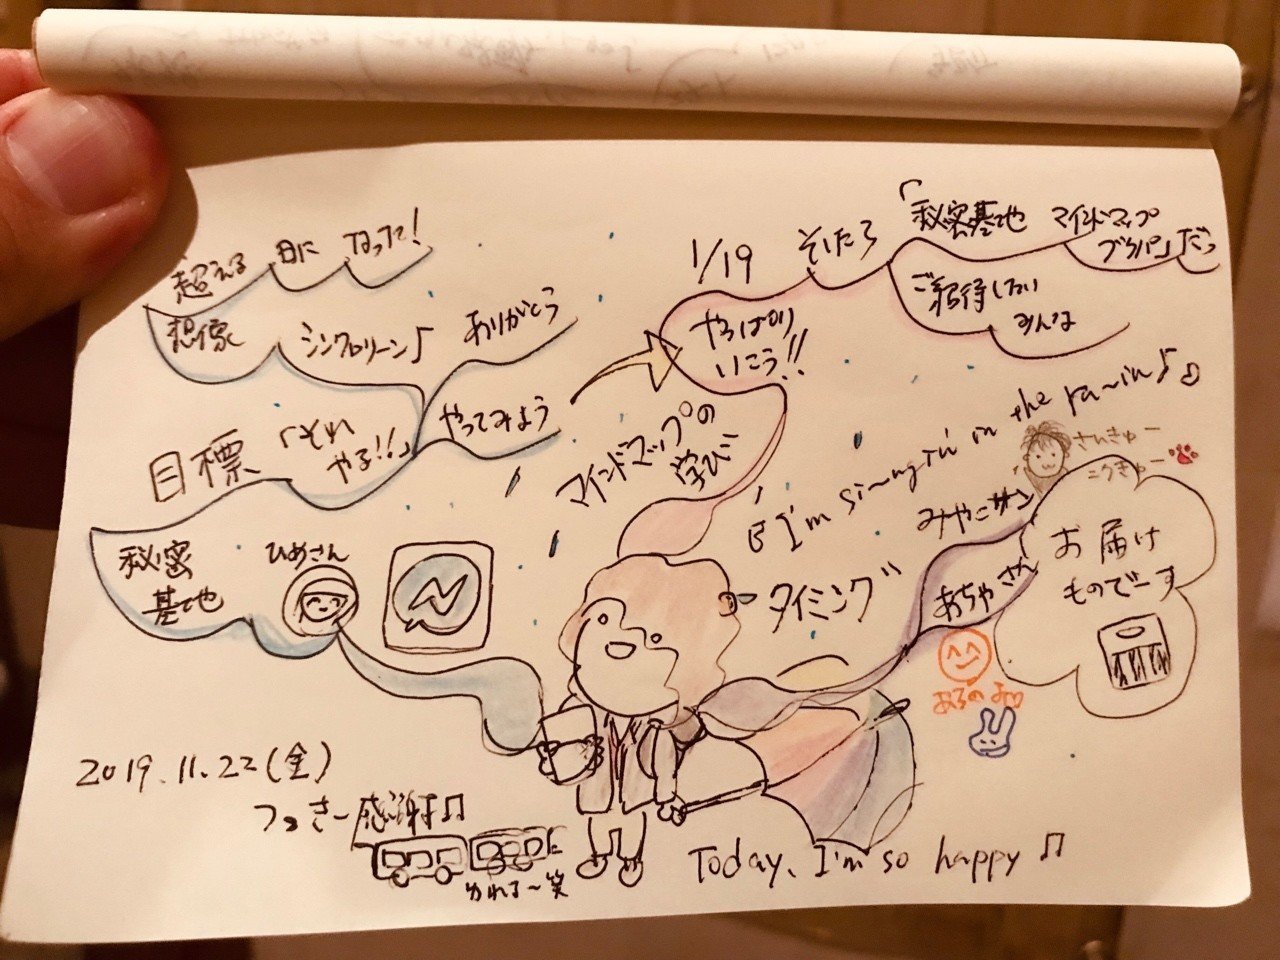 超える 日に なった!
想像 シンクロリーン♪ ありがとう
目標 「それ
やる!!」 やってみよう
秘密
基地
ひめさん
1/19 そしたら
「秘密基地 マインドマップ
ブラバ」だっ
ご招待したい
みんな
やっぱり
いこう!!
マインドマップの
学び
I'm si~ngin' in the ra~in♪♪
タイミング
みやこサン
さんきゅー
こうきゅー
あちゃさん
お届け
ものでーす
2019.11.22(金)
つっきー感謝♫
に
かれる~笑
Today, I'm so happy ♫